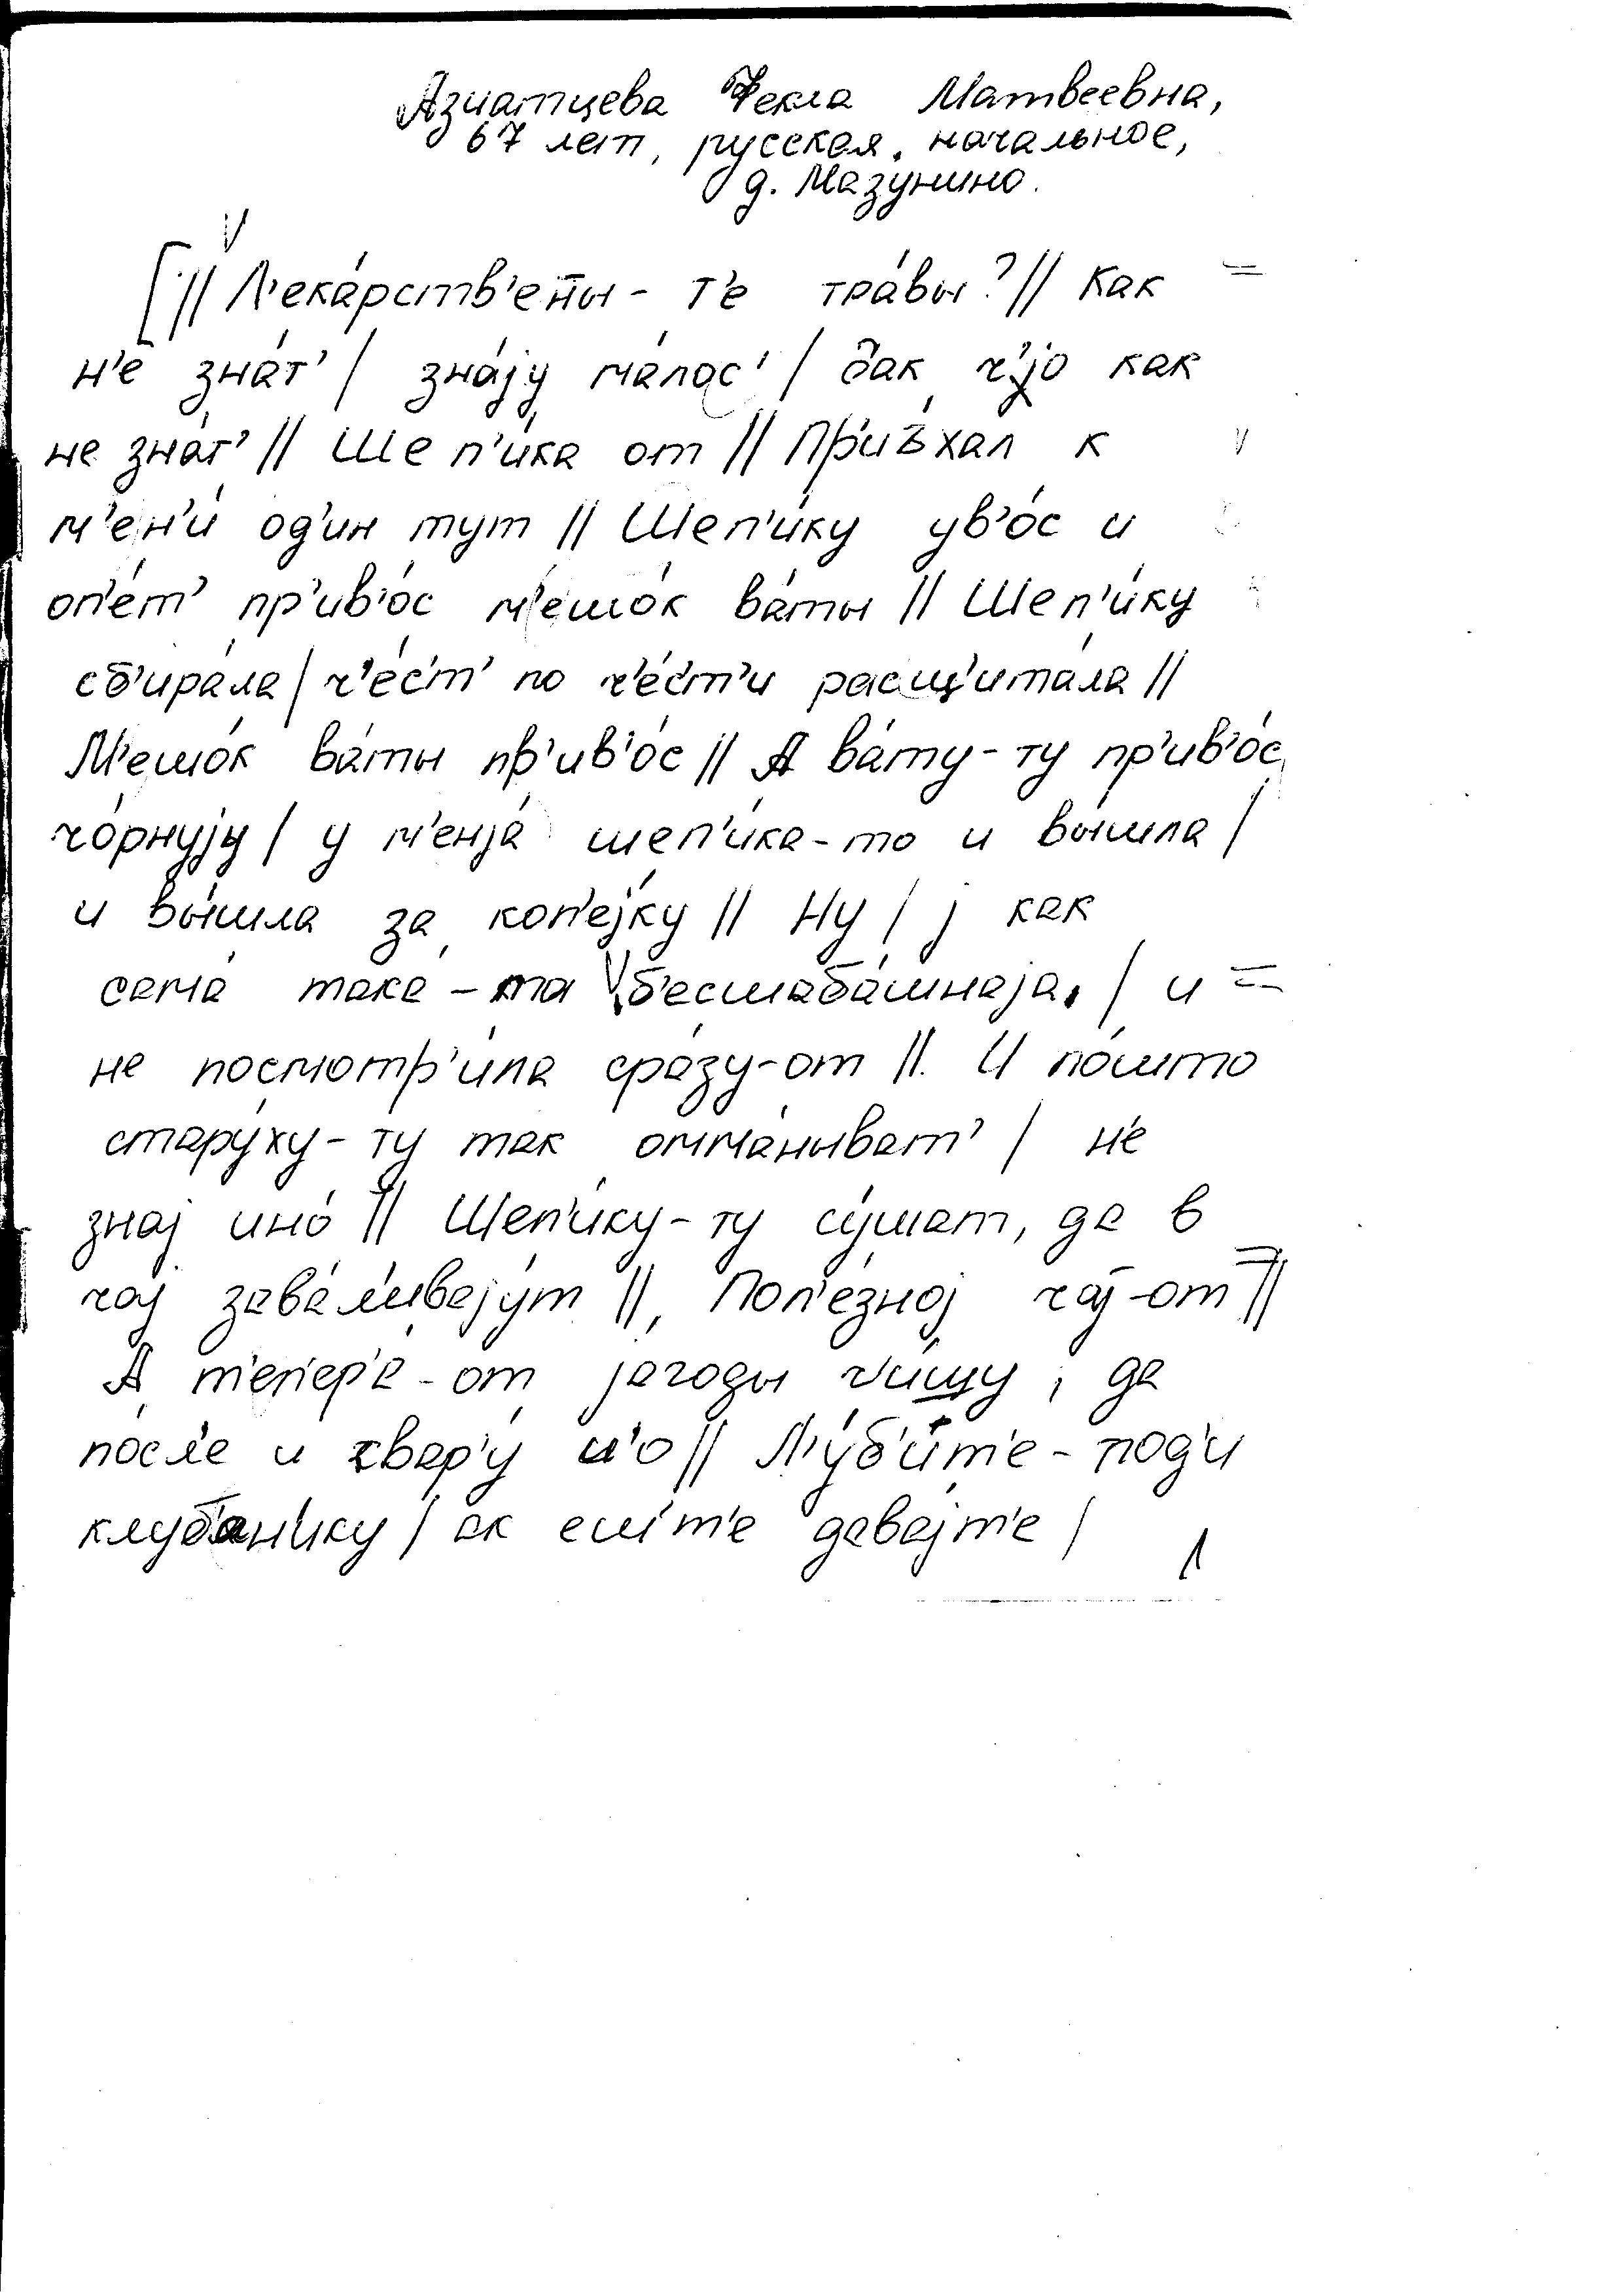 Азиатцева Фекла Матвеевна,
67 лет, русская, начальное,
д. Мазунино.
[|| Л'ека́рств'ен̄ы - т'е тра́вы? || Как
н'е зна́т' | зна́jу ма́лос' | дак ч'jо как
не зна́т' || Шеп'и́ка от || Пр'иѣ́хал к
м'ен'и́ од'ин тут || Шеп'и́ку ув'о́с и
оп'е́т' пр'ив'о́с м'ешо́к ва́ты || Шеп'и́ку
сб'ира́ла | ч'е́ст' по ч'е́ст'и расщ'ита́ла ||
М'ешо́к ва́ты пр'ив'о́с || А ва́ту-ту пр'ив'о́с
чо́рнуjу | у м'енjа́ шеп'и́ка-то и вы́шла |
и вы́шла за коп'е́jку || Ну | j как
сама́ така́-та б'есшаба́шнаjа, | и
не посмотр'и́ла сра́зу-от ||. И по́што
стару́ху-ту так омма́ныват' | н'е
знаj ино́ || Шеп'и́ку-ту су́шат, да в
чаj зава́л'иваjут || Пол'е́зноj чаj-от ||
А т'еп'ер'а-от jагоды ч'ищу, да
посл'е и свар'у́ и'о || Л'у́б'ит'е-под'и
клуб'ани́ку | ак еш'т'е дава́jт'е |